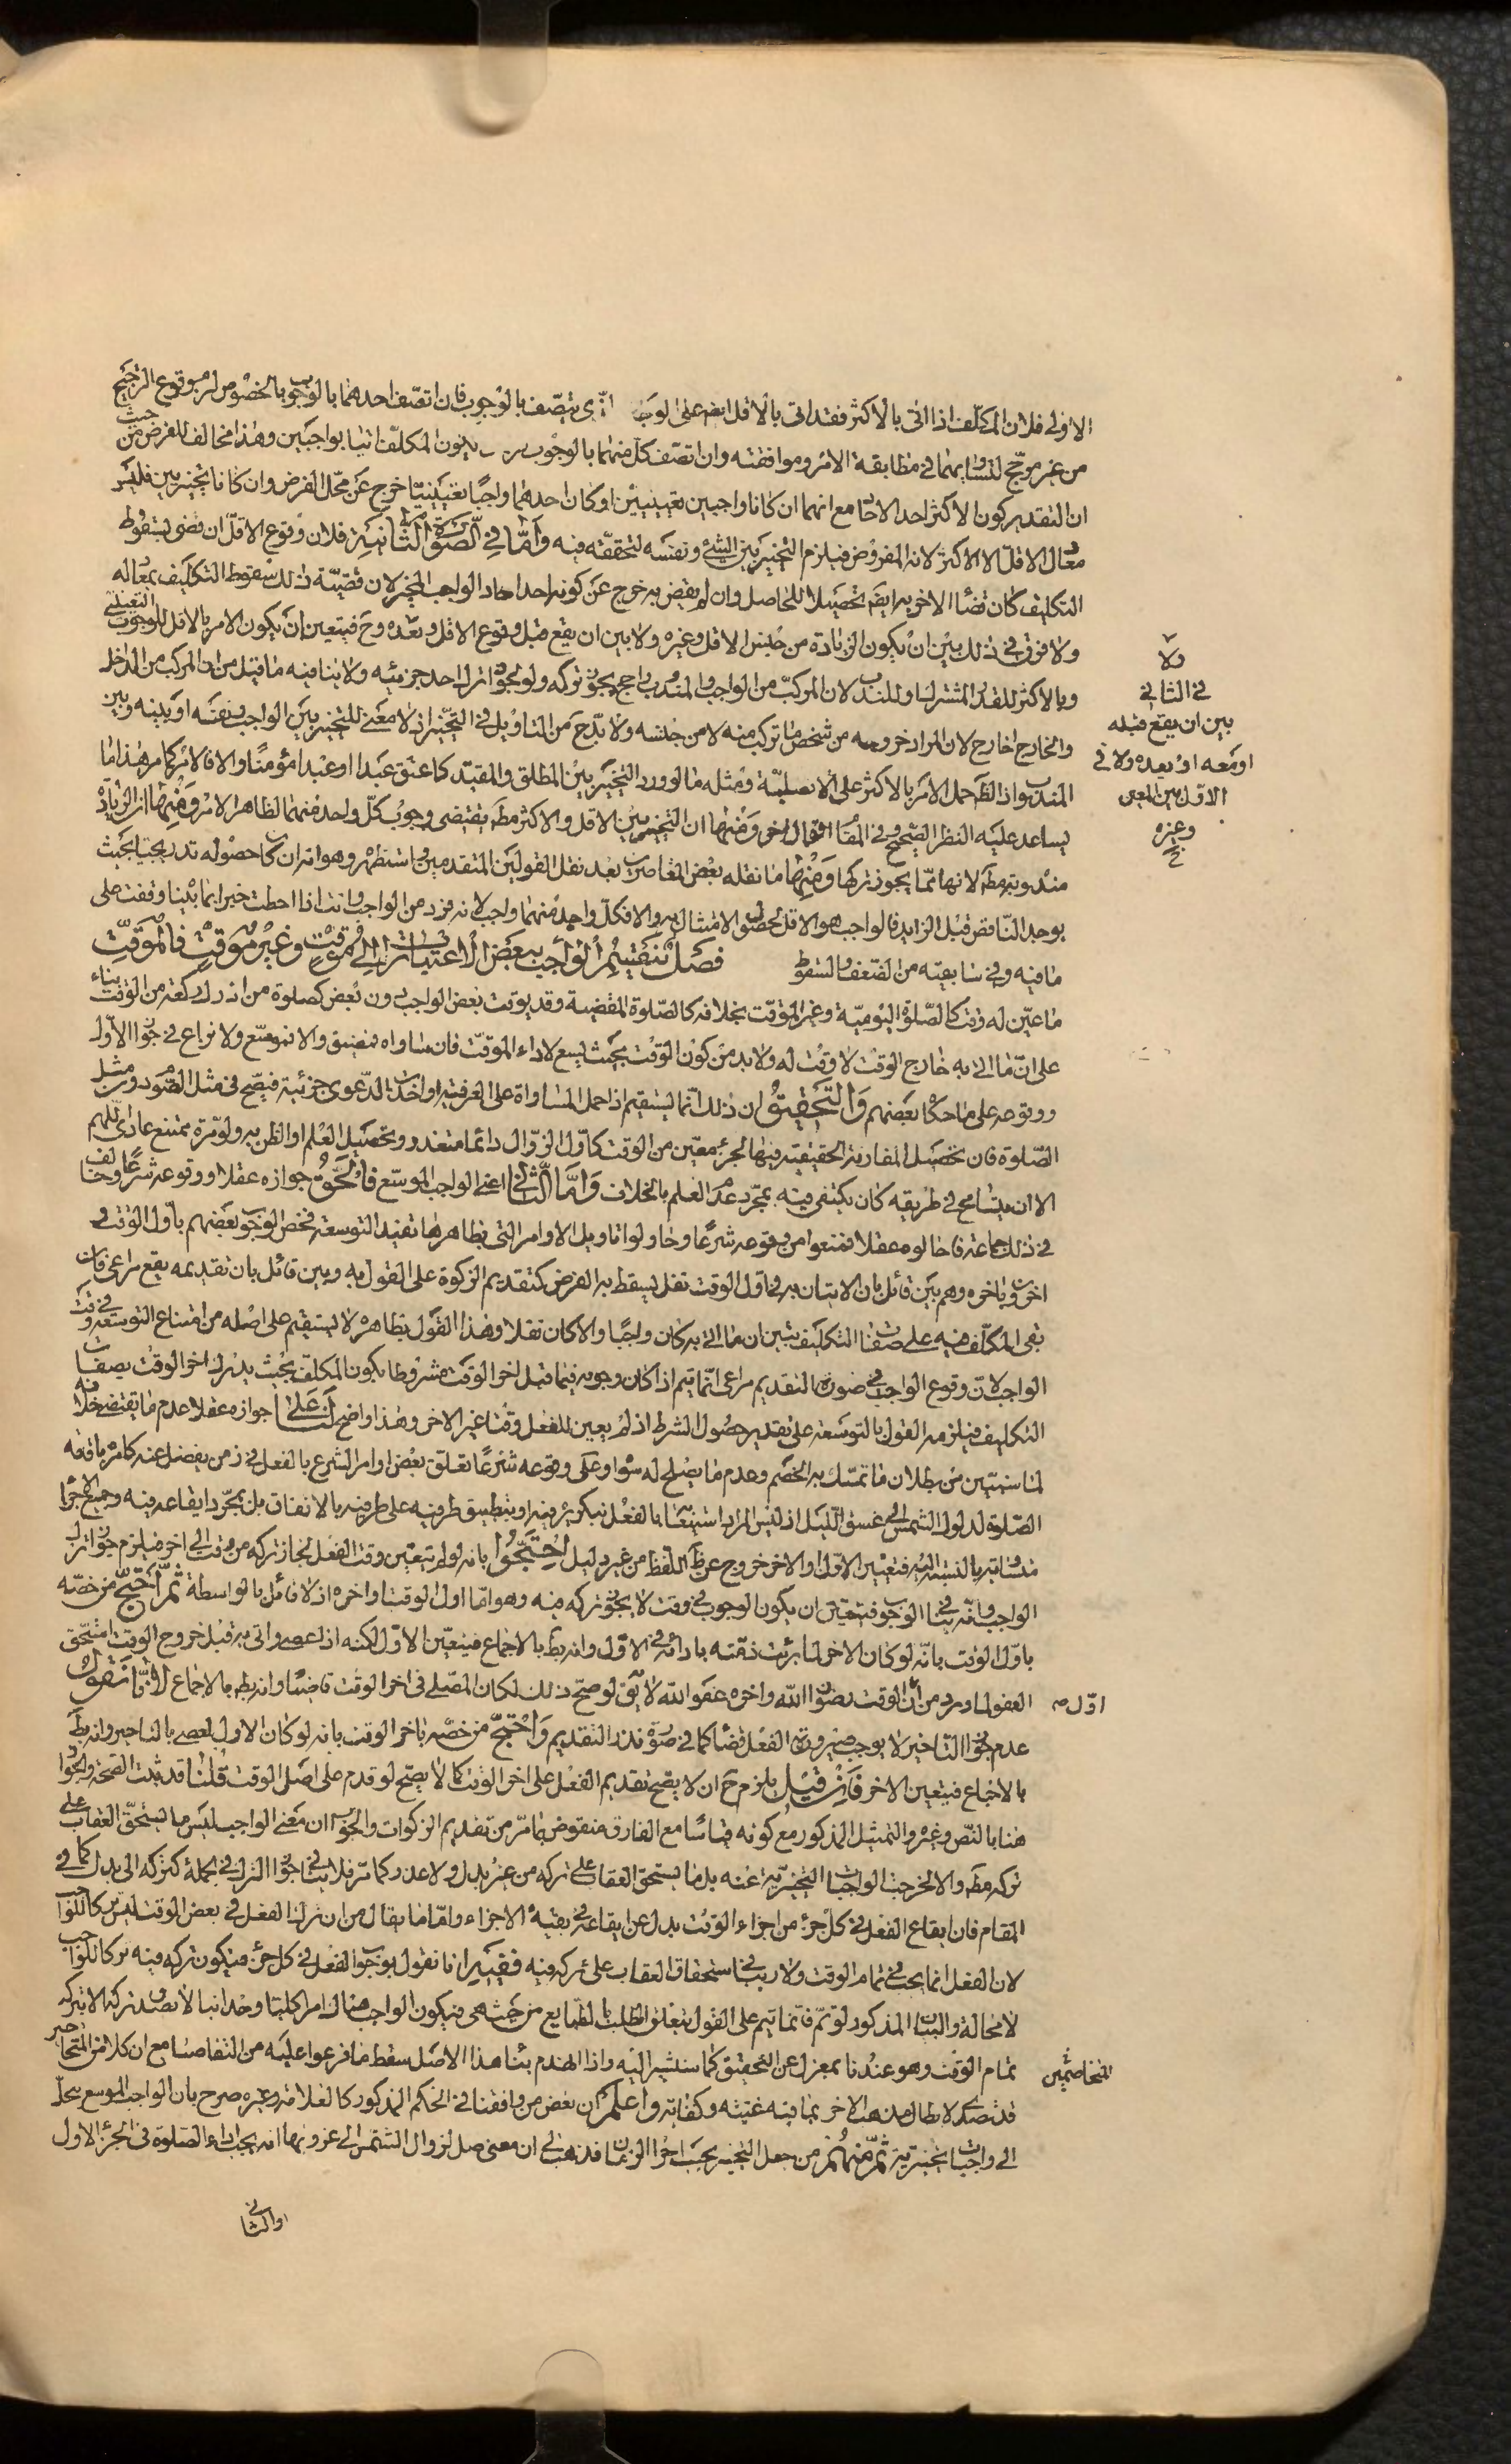 الاولى فلان المكلف اذا اتى بالاكثر فقد اتى بالاقل ايضا على الوجه الذى يتصف بالوجوب فان اتصف احدهما بالوجوب بالخصوص لزم وقوع الترجيح
من غير مرجح لتساويهما فى مطابقة الامر وموافقته وان اتصف كل منهما بالوجوب يكون المكلف اتيا بواجبين وهذا مخالف للفرض من حيث
ان التقدير كون الاكثر احد الاحاد مع انهما ان كانا واجبين تعيينيين او كان احدهما واجبا تعيينيا خرج عن محل الفرض وان كانا تخييريين فليس
معادل الاقل الا الاكثر لانه المفروض فيلزم التخيير بين الشئ ونفسه لتحققه فيه وَامّا فى الصّورة الثّانية فلان وقوع الاقل ان قضى بسقوط
التكليف كان قضاء الاخر به ايضا تحصيلا للحاصل وان لم يقض به خرج عن كونه احد احاد الواجب المخير لان قضيّة ذلك سقوط التكليف بمعادله
ولا فرق فى ذلك بين ان يكون الزيادة من جنس الاقل وغيره ولا بين ان يقع قبل وقوع الاقل وبعده وح فيتعين ان يكون الامر بالاقل للوجوب التعيينى
وبالاكثر للقدر المشترك او للندب لان المركب من الواجب والمندوب راجح يجوز تركه ولو بجواز ترك احد جزئيه ولا ينافيه ما قيل من ان المركب من الداخل
والخارج خارج لان المراد خروجه من شخص ما تركب منه لا من جنسه ولا بدّ ح من التاويل فى التخيير اذ لا معنى للتخيير بين الواجب ونفسه او بينه وبين
المندوب اذ الظ حمل الامر بالاكثر على الافضلية ومثله ما لو ورد التخيير بين المطلق والمقيد كاعتق عبدا او عبدا مؤمنا والا فالامر كما مر هذا ما
يساعد عليه النظر الصحيح وفى المقام اقوال اخر وَمِنْها ان التخيير بين الاقل والاكثر مطه يقتضى وجوب كل واحد منهما لظاهر الامر وَمِنها ان الزيادة
مندوبة مطه لانها مما يجوز تركها وَمِنها ما نقله بعض المعاصرين بعد نقل القولين المتقدمين واستظهره وهو انه ان كان حصوله تدريجيا بحيث
يوجد الناقص قبل الزايد فالواجب هو الاقل لحصول الامتثال به والا فكل واحد منهما واجب لانه فرد من الواجب وانت اذا احطت خبرا بما بينا وقفت على
ما فيه وفى سابقيه من الضعف والسقوط فصل ينقسم الواجب ببعض الاعتبارات الى موقت وغير موقت فالموقّت
ما عين له وقت كالصّلوة اليوميّة وغير الموقت بخلافه كالصّلوة المقضية وقد يوقت بعض الواجب دون بعض كصلوة من ادرك ركعة من الوقت بناء
على انّ ما اتى به خارج الوقت لا وقت له ولا بد من كون الوقت بحيث يسع لاداء الموقت فان ساواه فمضيق والا فموسّع ولا نزاع فى جواز الاول
ووقوعه على ما حكاه بعضهم وَالتّحقيق ان ذلك انما يستقيم اذا حمل المساواة على العرفية او اخذت الدّعوى جزئية فيصح فى مثل الصّوم دون مثل
الصّلوة فان تحصيل المقارنة الحقيقية فيها لجزء معين من الوقت كاوّل الزوال دائما متعذر وتحصيل العلم او الظن به ولو مرة ممتنع عادى اللهم
الا ان يتسامح فى طريقه كان يكتفى فيه بمجرد عدم العلم بالخلاف وَامّا الثّانى اعنى الواجب الموسّع فالحَق جوازه عقلا ووقوعه شرعا وخالف
فى ذلك جماعة فاحالوه عقلا فمنعوا من وقوعه شرعا وحاولوا تاويل الاوامر التى بظاهرها تفيد التوسعة فخص الوجوب بعضهم باول الوقت و
اخرون باخره وهم بين قائل بان الاتيان به فى اول الوقت نفل يسقط به الفرض كتقديم الزكوة على القول به وبين قائل بان تقديمه يقع مراعى فان
بقى المكلف فيه على صفات التكليف تبين ان ما اتى به كان واجبا والا كان نفلا وهذا القول بظاهره لا يستقيم على اصله من امتناع التوسعة فى وقت
الواجب لان وقوع الواجب فى صورة التقديم مراعى انما يتم اذا كان وجوبه فيما قبل اخر الوقت مشروطا بكون المكلف بحيث يدرك اخر الوقت بصفات
التكليف فيلزمه القول بالتوسعة على تقدير حصول الشرط اذ لم يعين للفعل وقتا غير الاخر وهذا واضح لَنا على جوازه عقلا عدم ما يقتضى خلافه
لما سنبين من بطلان ما تمسك به الخصم وعدم ما يصلح له سواه وعلى وقوعه شرعا تعلق بعض اوامر الشرع بالفعل فى زمن يفضل عنه كامره باقامة
الصّلوة لدلوك الشمس الى غسق الّليل اذ ليس المراد استيعابها بالفعل بتكريره فيه او بتطبيق طرفيه على طرفيه بالاتفاق بل بمجرد ايقاعه فيه وجميع الاجزاء
متساوية بالنسبة اليه فتعيين الاول او الاخر خروج عن ظ اللفظ من غير دليل احتجّوا بانه لو لم يتعين وقت الفعل لجاز تركه من وقت الى اخر فيلزم جواز ترك
الواجب وانّه ينافى الوجوب فيتعين ان يكون الوجوب فى وقت لا يجوز تركه فيه وهو امّا اول الوقت او اخره اذ لا قائل بالواسطة ثم احتجّ من خصّه
باوّل الوقت بانّه لو كان الاخر لما برئت ذمّته بادائه فى الاوّل وانه بط بالاجماع فيتعين الاوّل لكنه اذا عصى واتى به قبل خروج الوقت استحق
العفو لما ورد من ان الوقت رضوان الله واخره عفو الله لا يق لو صح ذلك لكان المصلى فى اخر الوقت قاضيا وانه بط بالاجماع لانّا نقول
عدم جواز التاخير لا يوجب صيرورة الفعل قضاء كما فى صورة نذر التقديم وَاحْتجّ من خصّه باخر الوقت بانه لو كان الاول لعصى بالتاخير وانه بط
بالاجماع فيتعين الاخر فَاِنْ قيل يلزم ح ان لا يصح تقديم الفعل على اخر الوقت كما لا يصح لو قدم على اصل الوقت قُلنا قد ثبت الصحة والجواز
هنا بالنّص وغيره والتمثيل المذكور مع كونه قياسا مع الفارق منقوض بما مرّ من تقديم الزكوات والجواب ان معنى الواجب ليس ما يستحق العقاب على
تركه مطه والا لخرجت الواجبات التخييرية عنه بل ما يستحق العقاب على تركه من غير بدل ولا عذر كما مر فلا ينافى جواز الترك فى الجملة كتركه الى بدل كما فى
المقام فان ايقاع الفعل فى كل جزء من اجزاء الوقت بدل عن ايقاعه فى بقية الاجزاء وامّا ما يقال من ان ترك الفعل فى بعض الوقت ليس تركا للواجب
لان الفعل انما يجب فى تمام الوقت ولا ريب فى استحقاق العقاب على تركه فيه ففيه انا نقول بوجوب الفعل فى كل جزء فيكون تركه فيه تركا للواجب
لا محالة والبيان المذكور لو تم فانما يتم على القول بتعلق الطلب بالطبايع من حيث هى فيكون الواجب هناك امرا كليا وحدانيا لا يصدق تركه الا بتركه
تمام الوقت وهو عندنا بمعزل عن التحقيق كما سنشير اليه واذا انهدم بناء هذا الاصل سقط ما فرعوا عليه من التفاصيل مع ان كلا من المتخاصمين
قد تصدى لابطال مذهب الاخر بما فيه غنية وكفاية واعلم ان بعض من وافقنا فى الحكم المذكور كالعلامة وغيره صرح بان الواجب الموسع ينحل
الى واجبات تخييرية ثمّ منهم من جعل التخيير بحسب اجزاء الزمان فذهب الى ان معنى صل لزوال الشمس الى غروبها انه يجب اداء الصّلوة فى الجزء الاول
او الثانى
ولا
فى الثانى
بين ان يقع قبله
او معه او بعده ولا فى
الاول بين المعين
وغيره
اوّل
المتخاصمين